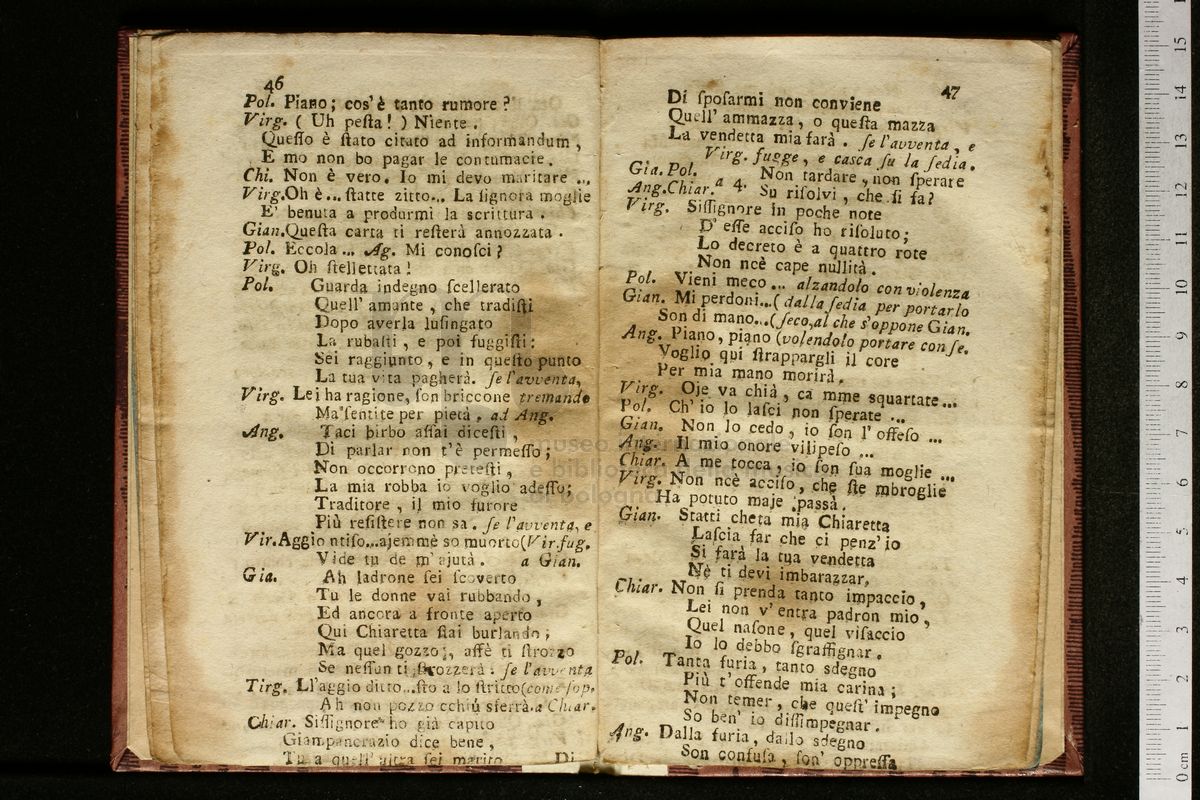 46
Pol. Piano; cos'è tanto rumore?
Virg. ( Uh peſta! ) Niente.
Queſto è ſtato citato ad informandum,
E mo non bo pagar le contumacie.
Chi. Non è vero. Io mi devo maritare ...
Virg. Oh è... ſtatte zitto... La ſignora moglie
E' benuta a produrmi la scrittura.
Gian. Queſta carta ti reſterà annozzata.
Pol. Eccola... Ag. Mi conoſci?
Virg. Oh ſtellettata!
Pol. Guarda indegno ſcellerato
Quell' amante, che tradiſti
Dopo averla luſingato
La rubaſti, e poi fuggiſti:
Sei raggiunto, e in queſto punto
La tua vita pagherà. ſe l'avventa,
Virg. Lei ha ragione, ſon briccone tremando
Ma ſentite per pietà, ad Ang.
Ang. Taci birbo aſſai diceſti,
Di parlar non t'è permeſſo;
Non occorrono preteſti,
La mia robba io voglio adeſſo;
Traditore, il mio furore
Più reſiſtere non sa. ſe l'avventa, e
Vir. Aggio ntiſo...ajemmè so muorto (Vir. fug.
Vide tu de m' ajutà. a Gian.
Gia. Ah ladrone ſei ſcoverto
Tu le donne vai rubbando,
Ed ancora a fronte aperto
Qui Chiaretta ſtai burlando;
Ma quel gozzo;, affè ti ſtrozzo
Se neſſun ti ſtrozzerà. ſe l'avventa
Tirg. Ll'aggio ditto...ſto a lo ſtritto (come ſop.
Ah non pozzo cchiù sferrà. a Chiar.
Chiar. Siſſignore ho già capito
Giampancrazio dice bene,
Tu a quell' altra ſei marito
Di
47
Di ſpoſarmi non conviene
Quell' ammazza, o queſta mazza
La vendetta mia farà. ſe l'avventa, e
Virg. fugge, e caſca ſu la ſedia.
Gia. Pol. Non tardare, non ſperate
Ang. Chiar. a 4. Su riſolvi, che ſi fa?
Virg. Siſſignore in poche note
D' eſſe acciſo ho riſoluto;
Lo decreto è a quattro rote
Non ncè cape nullità.
Pol. Vieni meco... alzandolo con violenza
Gian. Mi perdoni...( dalla ſedia per portarlo
Son di mano...(ſeco, al che s'oppone Gian.
Ang. Piano, piano (volendolo portare con ſe.
Voglio qui ſtrappargli il core
Per mia mano morirà.
Virg. Oje va chià, ca mme squartate...
Pol. Ch' io lo laſci non ſperate ...
Gian. Non lo cedo, io ſon l' offeſo ...
Ang. Il mio onore vilipeſo ...
Chiar. A me tocca, io ſon ſua moglie ...
Virg. Non ncè acciſo, che ſte mbroglie
Ha potuto maje paſſà.
Gian. Statti cheta mia Chiaretta
Laſcia far che ci penz' io
Si farà la tua vendetta
Nè ti devi imbarazzar,
Chiar. Non ſi prenda tanto impaccio,
Lei non v' entra padron mio,
Quel naſone, quel viſaccio
Io lo debbo ſgraffignar.
Pol. Tanta furia, tanto sdegno
Più t'offende mia carina;
Non temer, che queſt' impegno
So ben' io diſſimpegnar.
Ang. Dalla furia, dallo sdegno
Son confuſa, ſon' oppreſſa